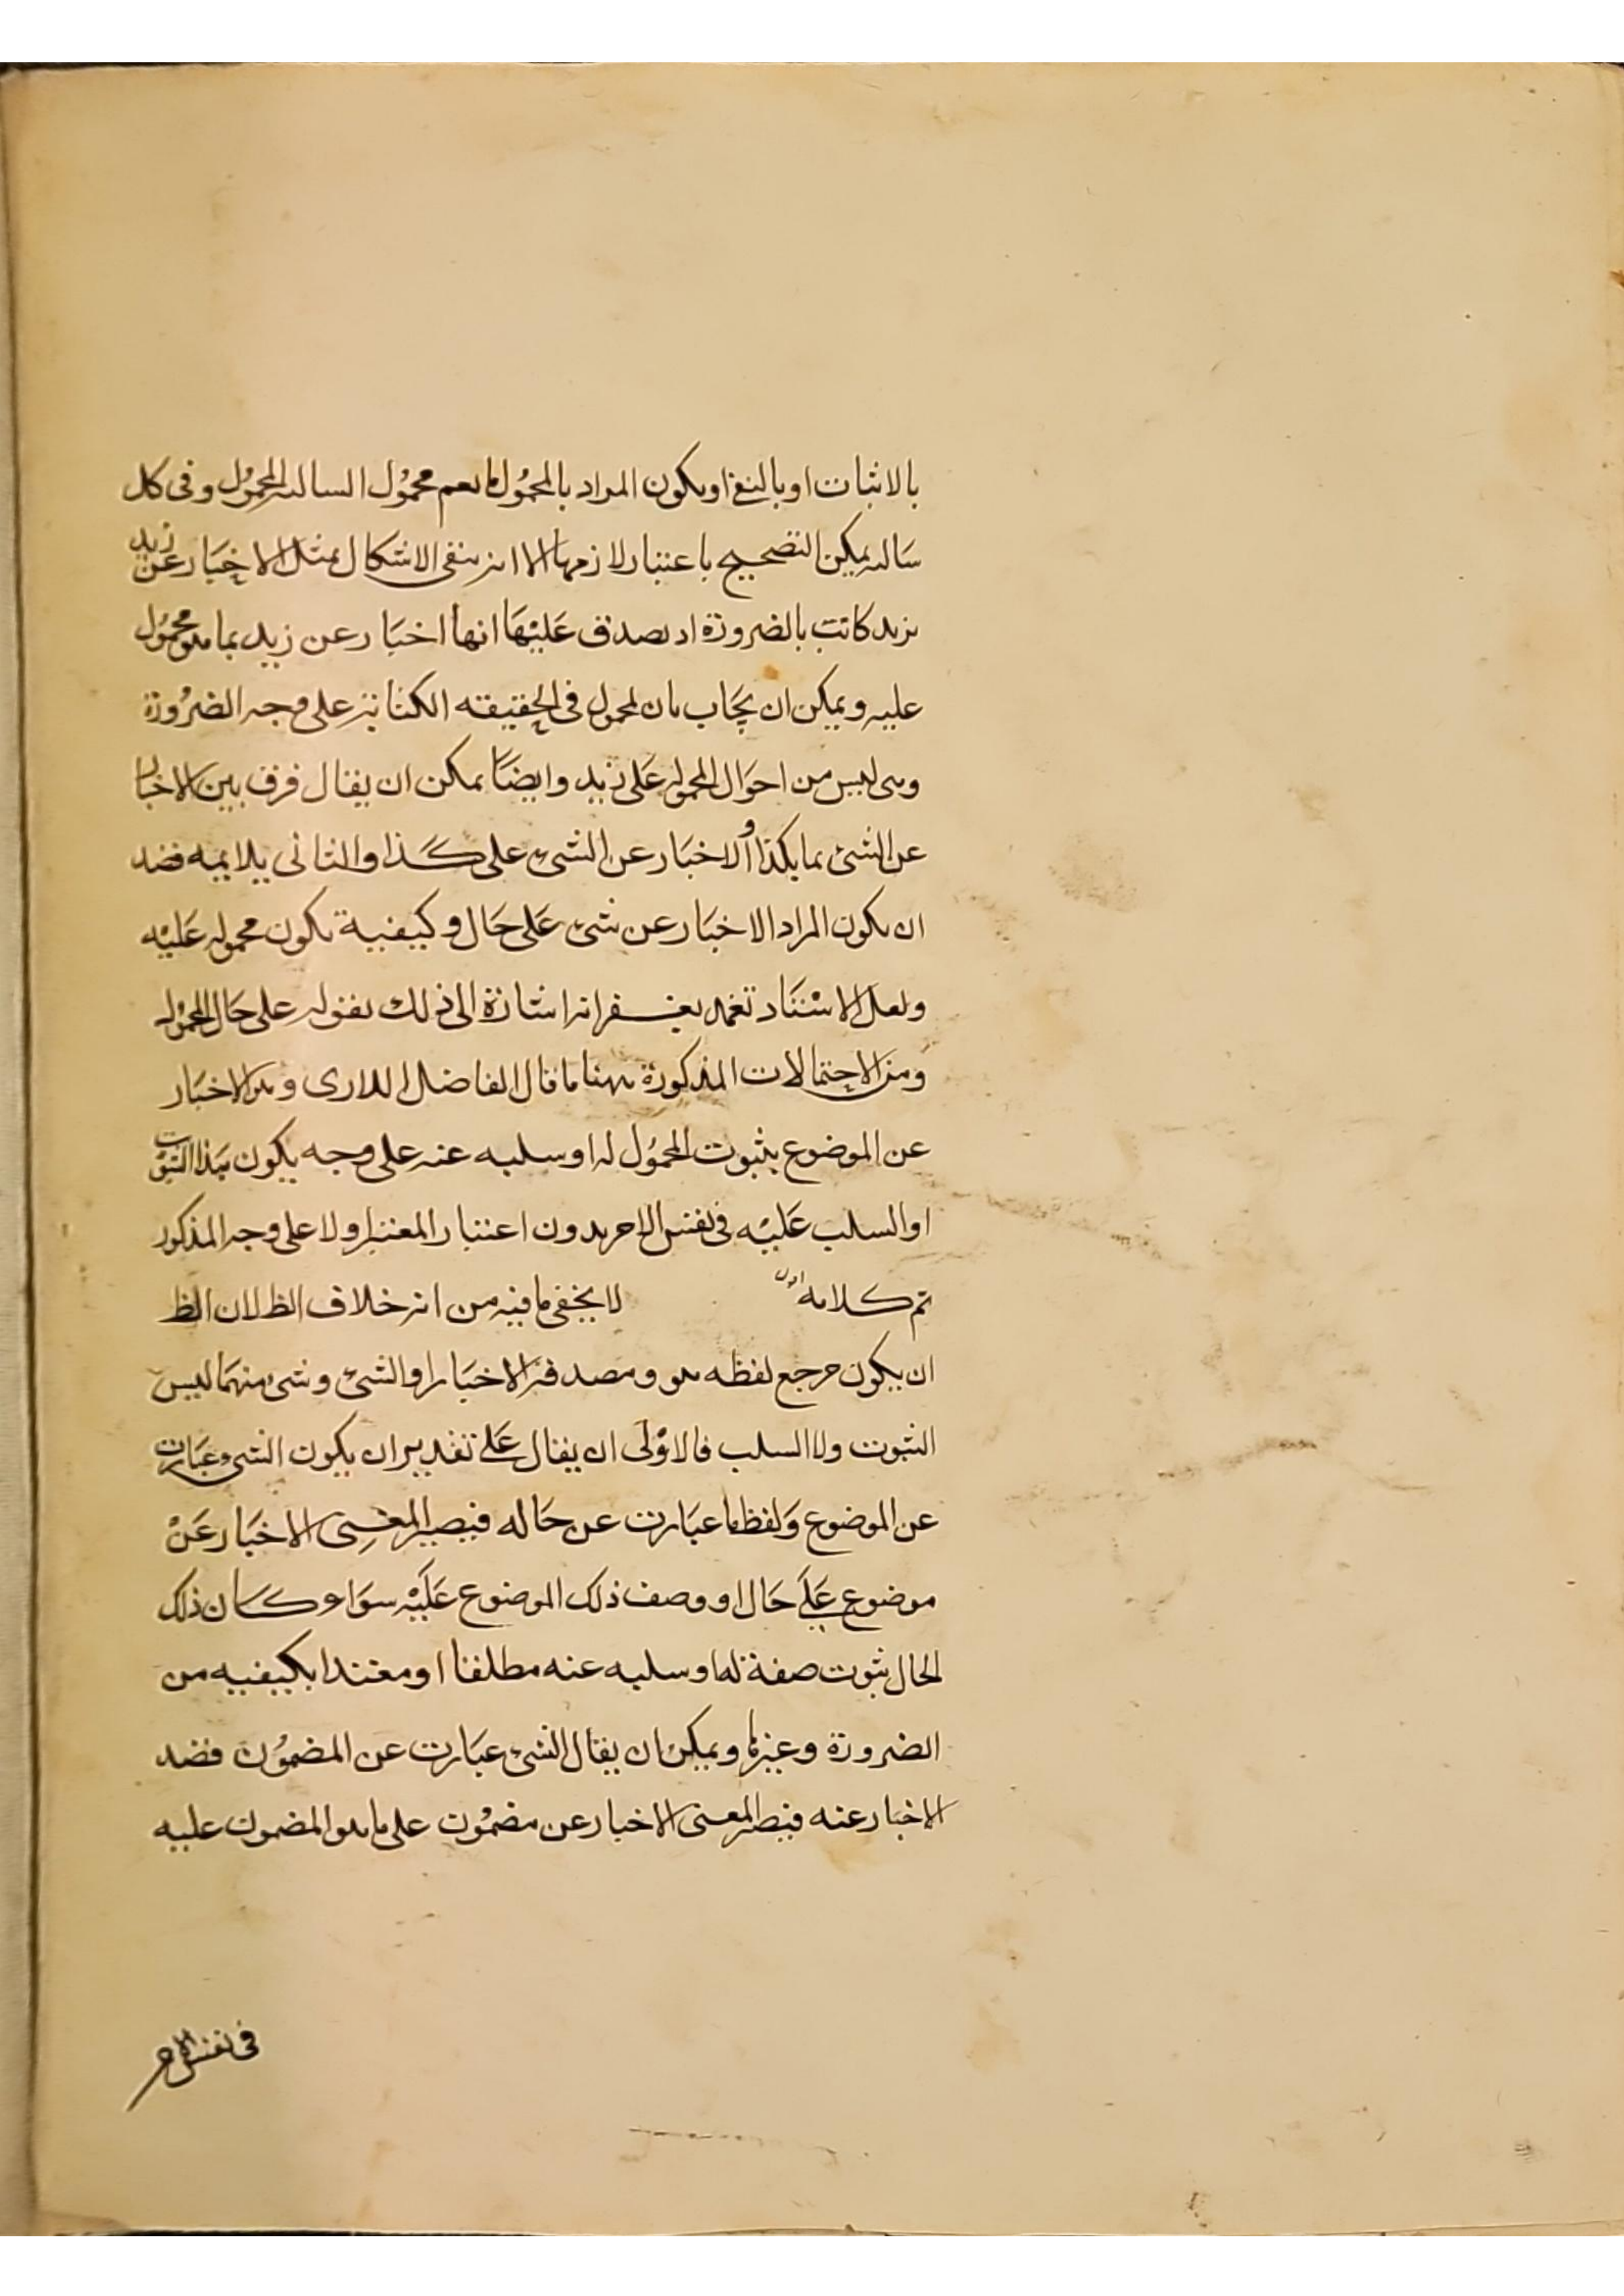 بالاثبات او بالنفى او يكون المراد بالمحمُول ما يعم محمُول السالبه المحمُول وفى كل
سَالبه يمكن التصحيح باعتبار لازمها الا انه ينفى الاشكال بمثل الاخبَار عن زيد
بزيد كاتب بالضرورة اذ يصدق عَليْهَا انها اخبَار عن زيد بما هو محمُول
عليه ويمكن ان يجَاب بان المحمول فى الحقيقه الكتابة على وجه الضرُورة
وهى ليس من احوَال المحموله عَلى زيد وايضًا يمكن ان يقال فرق بين الاخبار
عن الشئ بما هكذا والاخبَار عن الشئ على كذا والثانى يلايمه قصد
ان يكون المراد الاخبَار عن شئ عَلى حَال وكيفية تكون محموله عَليْه
ولعل الاسْتَاد تغمد بغفرانه اشارة الى ذلك بقوله على حَال المحمُوله
ومن الاحتمالات المذكورة ههنا ما قال الفاضل اللارى وهو الاخبَار
عن الموضوع بثبوت المحمُول له او سلبه عنه على وجه يكون هَذا الثبوت
او السلب عَليْه فى نفس الامر بدون اعتبار المعتبر اولا على وجه المذكور
تم كلامه اقول لا يخفى ما فيه من انه خلاف الظ لان الظ
ان يكون مرجع لفظه هو ومصدقه الاخبَار او الشئ وشئ منهمَا ليس
الثبوت ولا السلب فالاوْلَى ان يقال عَلى تقدير ان يكون الشئ عبَارت
عن الموضوع وَلفظ ما عبَارت عن حَاله فيصير المعْنِى الاخبَار عَنْ
موضوع عَلَى حَال او وصف ذلك الموضوع عَليْه سوَاء كان ذلك
الحال ثبوت صفة له او سلبه عنه مطلقا او مقيدا بكيفيه من
الضرورة وغيرها ويمكن ان يقال الشئ عبَارت عن المضمُون قصد
الاخبار عنه فيصير المعنى الاخبار عن مضمُون على ما هو المضمون عليه
فى نفس الامر